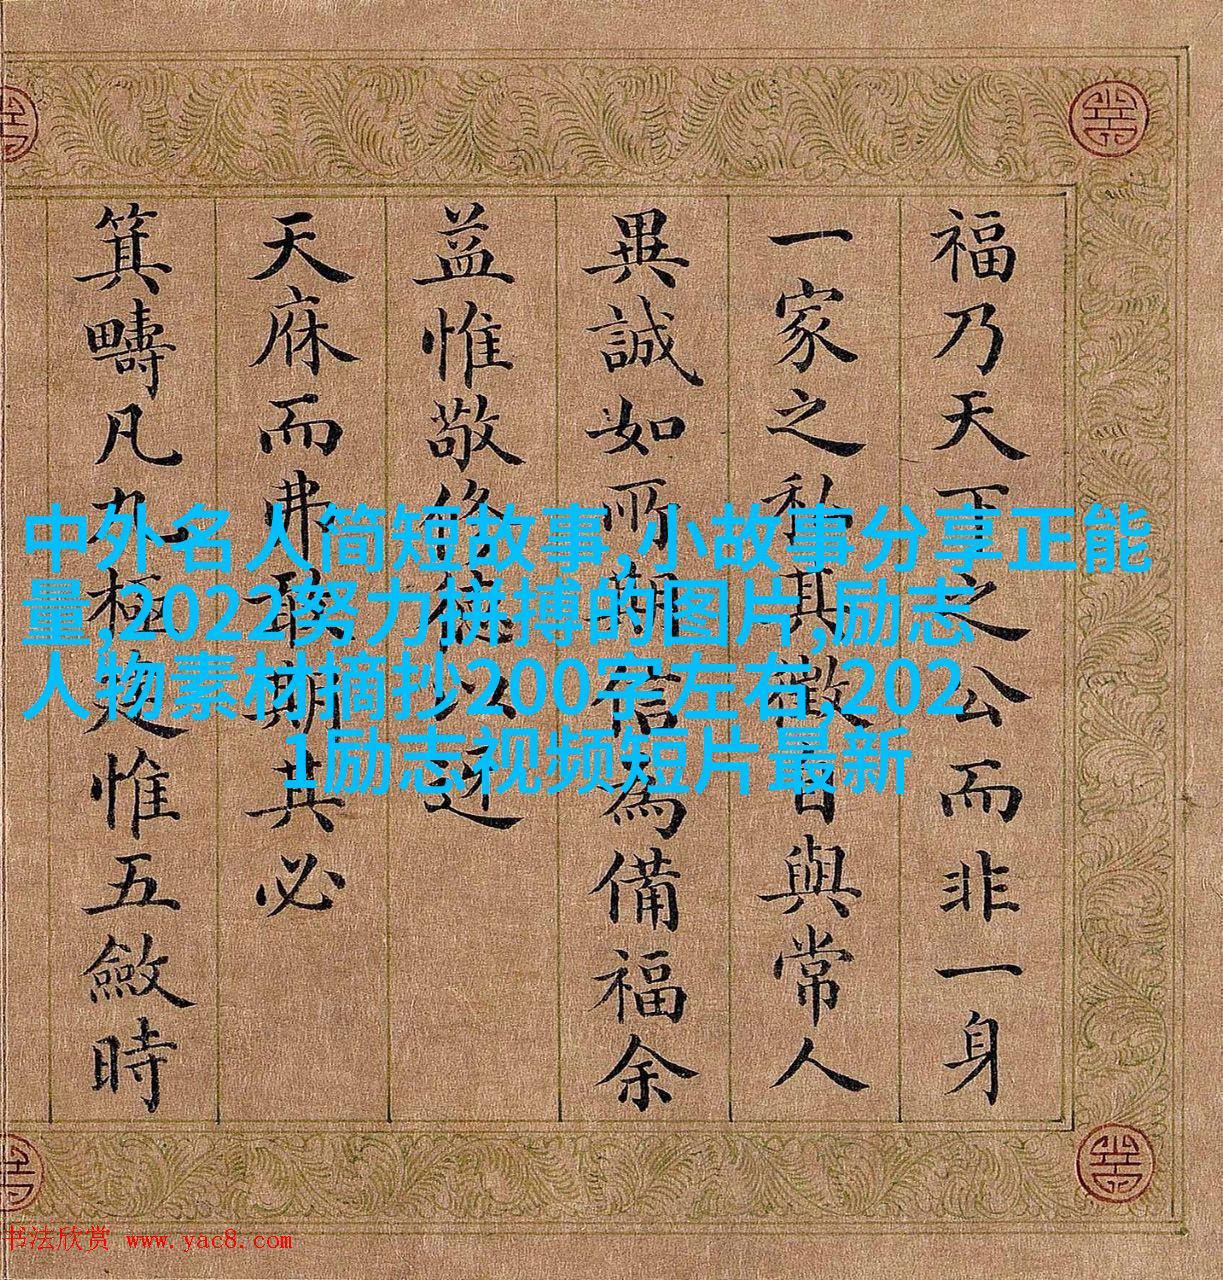 福乃天下之公而非一身
一家之私其徵與常人
異誠如所期信為備福余
益惟敬修德以迓
天庥而弗敢期其必
箕疇凡九極建惟五斂時
中外名人简短故事,小故事分享正能
量,2022努力拼搏的图片,励志
人物素材摘抄200字左右,202
1励志视频短片最新
书法欣赏 www.yac8.com